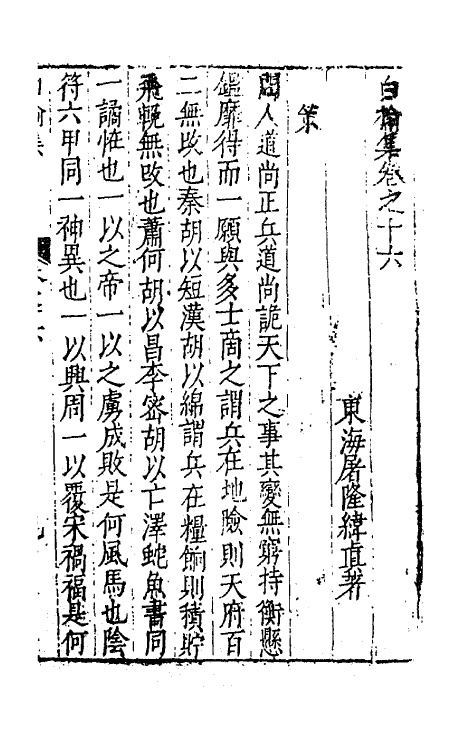 白榆集卷之十六
東海屠隆緯真著
策
問人道尚正兵道尚詭天下之事其變無窮持衡懸
鑑靡得而一願與多士商之謂兵在地險則天府百
二無改也秦胡以短漢胡以綿謂兵在糧餉則積貯
飛輓無改也蕭何胡以昌李密胡以亡澤蛇魚書同
一譎怪也一以之帝一以之虜成敗是何風馬也陰
符六甲同一神異也一以興周一以覆宋禍福是何